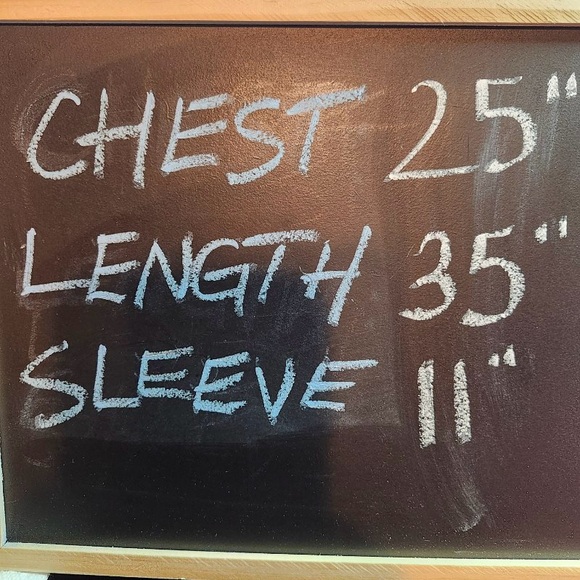 CHEST 25"
LENGTH 35"
SLEEVE 11"